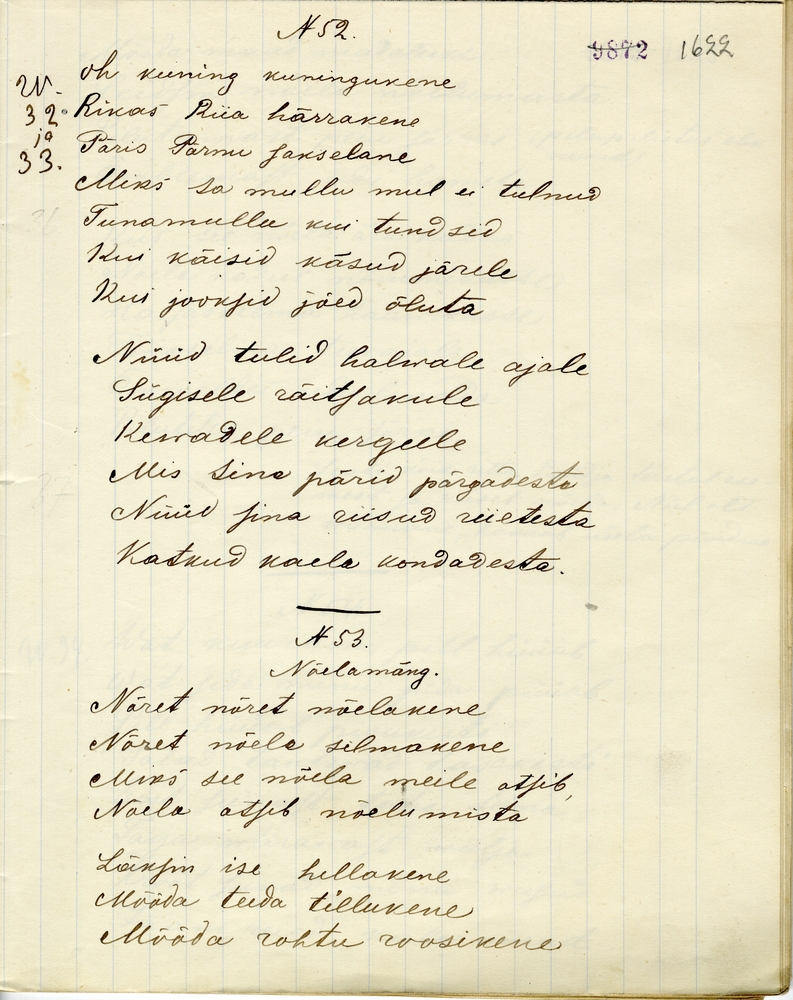 N 52.
9872 1622
W.
32.
ja
33.
oh kuning kuningukene
Rikas Riia härrakene
Päris Pärnu sakselane
Miks sa mullu mul ei tulnud
Tunamullu kui tundsid
Kui käisid käsud järele
Kui jooksid jões õluta
Nüüd tulid halwale ajale
Sügisele räitsakule
Kewadele kergeele
Mis sina pärid pärgadesta
Nüüd sina riisud riietesta
Katkud kaela kondadesta.
N 53.
Nõelamäng.
Nõret nõret nõelakene
Nõret nõela silmakene
Miks see nõela meile otsib,
Noela otsib nõelumista
Läksin ise hellakene
Mööda teeda tillukene
Mööda rohtu roosikene